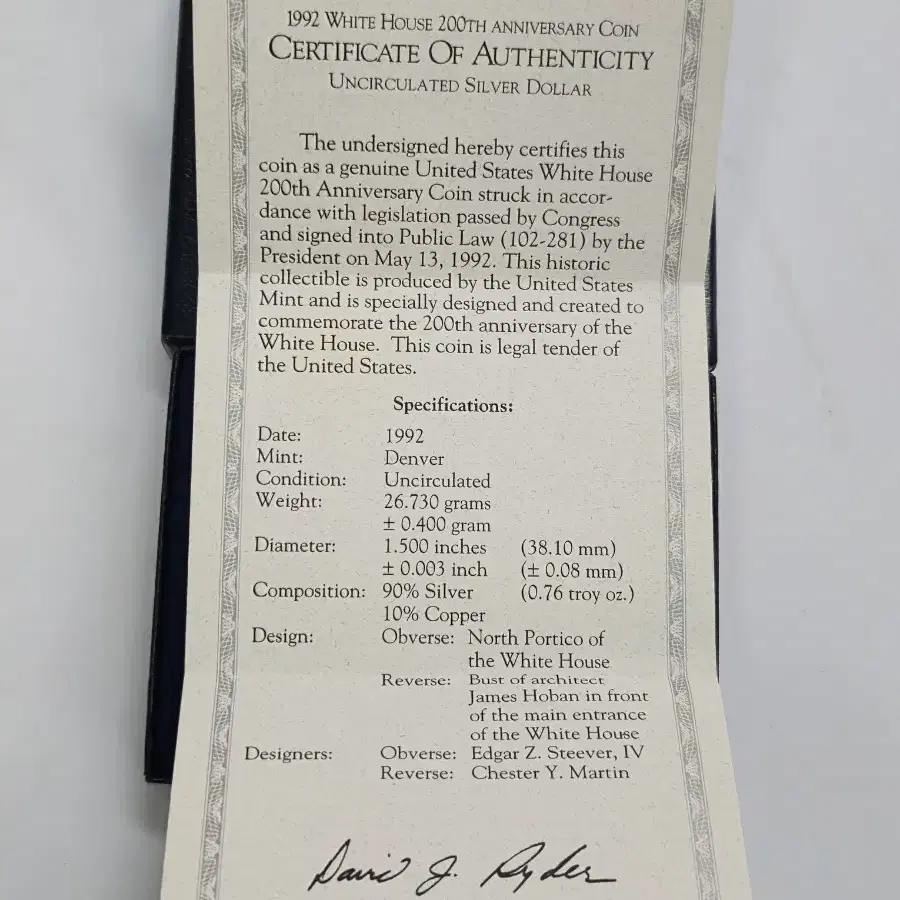 1992 WHITE HOUSE 200TH ANNIVERSARY COIN
CERTIFICATE OF AUTHENTICITY
UNCIRCULATED SILVER DOLLAR
The undersigned hereby certifies this
coin as a genuine United States White House
200th Anniversary Coin struck in accor-
dance with legislation passed by Congress
and signed into Public Law (102-281) by the
President on May 13, 1992. This historic
collectible is produced by the United States
Mint and is specially designed and created to
commemorate the 200th anniversary of the
White House. This coin is legal tender of
the United States.
Specifications:
Date: 1992
Mint: Denver
Condition: Uncirculated
Weight: 26.730 grams
± 0.400 gram
Diameter: 1.500 inches (38.10 mm)
± 0.003 inch (± 0.08 mm)
Composition: 90% Silver (0.76 troy oz.)
10% Copper
Design: Obverse: North Portico of
the White House
Reverse: Bust of architect
James Hoban in front
of the main entrance
of the White House
Designers: Obverse: Edgar Z. Steever, IV
Reverse: Chester Y. Martin
David J. Ryder